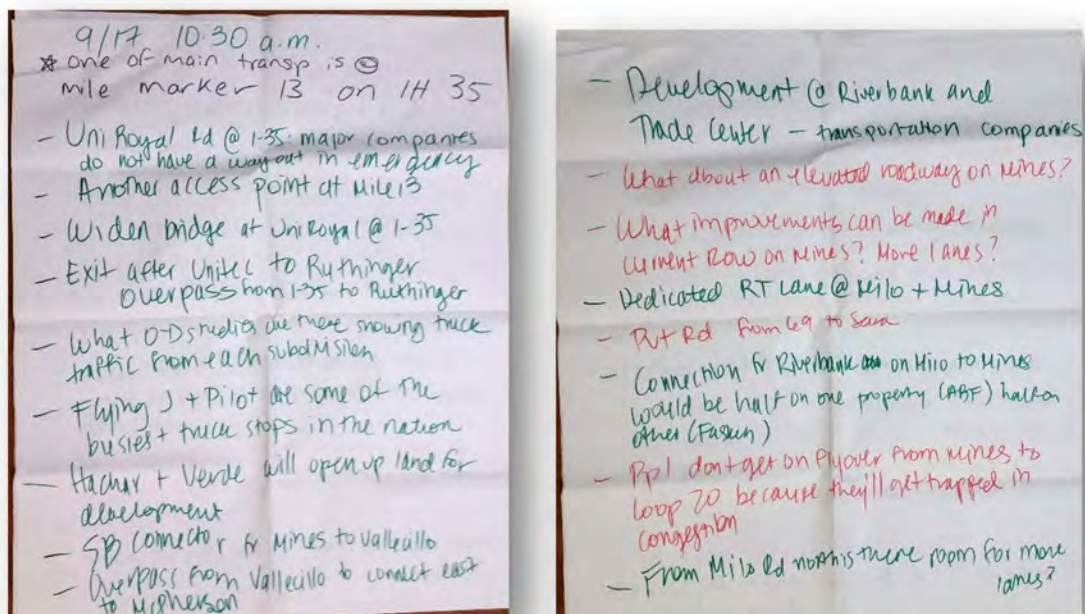 9/17 10:30 a.m.
* one of main transp is @
mile marker 13 on IH 35
- Uni Royal Rd @ I-35: major companies
do not have a way out in emergency
- Another access point at Mile 13
- Widen bridge at UniRoyal @ I-35
- Exit after Unitec to Ruthinger
overpass from I-35 to Ruthinger
- What O-D studies are there showing truck
traffic from each subdivision
- Flying J + Pilot are some of the
busiest truck stops in the nation
- Hachar + Verde will open up land for
development
- SB connector fr Mines to Vallecillo
- Overpass from Vallecillo to connect east
to McPherson
- Development @ Riverbank and
Trade Center - transportation companies
- What about an elevated roadway on Mines?
- What improvements can be made in
current ROW on Mines? More lanes?
- Dedicated RT Lane @ Milo + Mines
- Pvt Rd from 69 to Sara
- Connection fr Riverbank on Milo to Mines
would be half on one property (ABF) half on
other (Fasken)
- Ppl don't get on flyover from Mines to
Loop 20 because they'll get trapped in
congestion
- From Milo Rd north is there room for more
lanes?